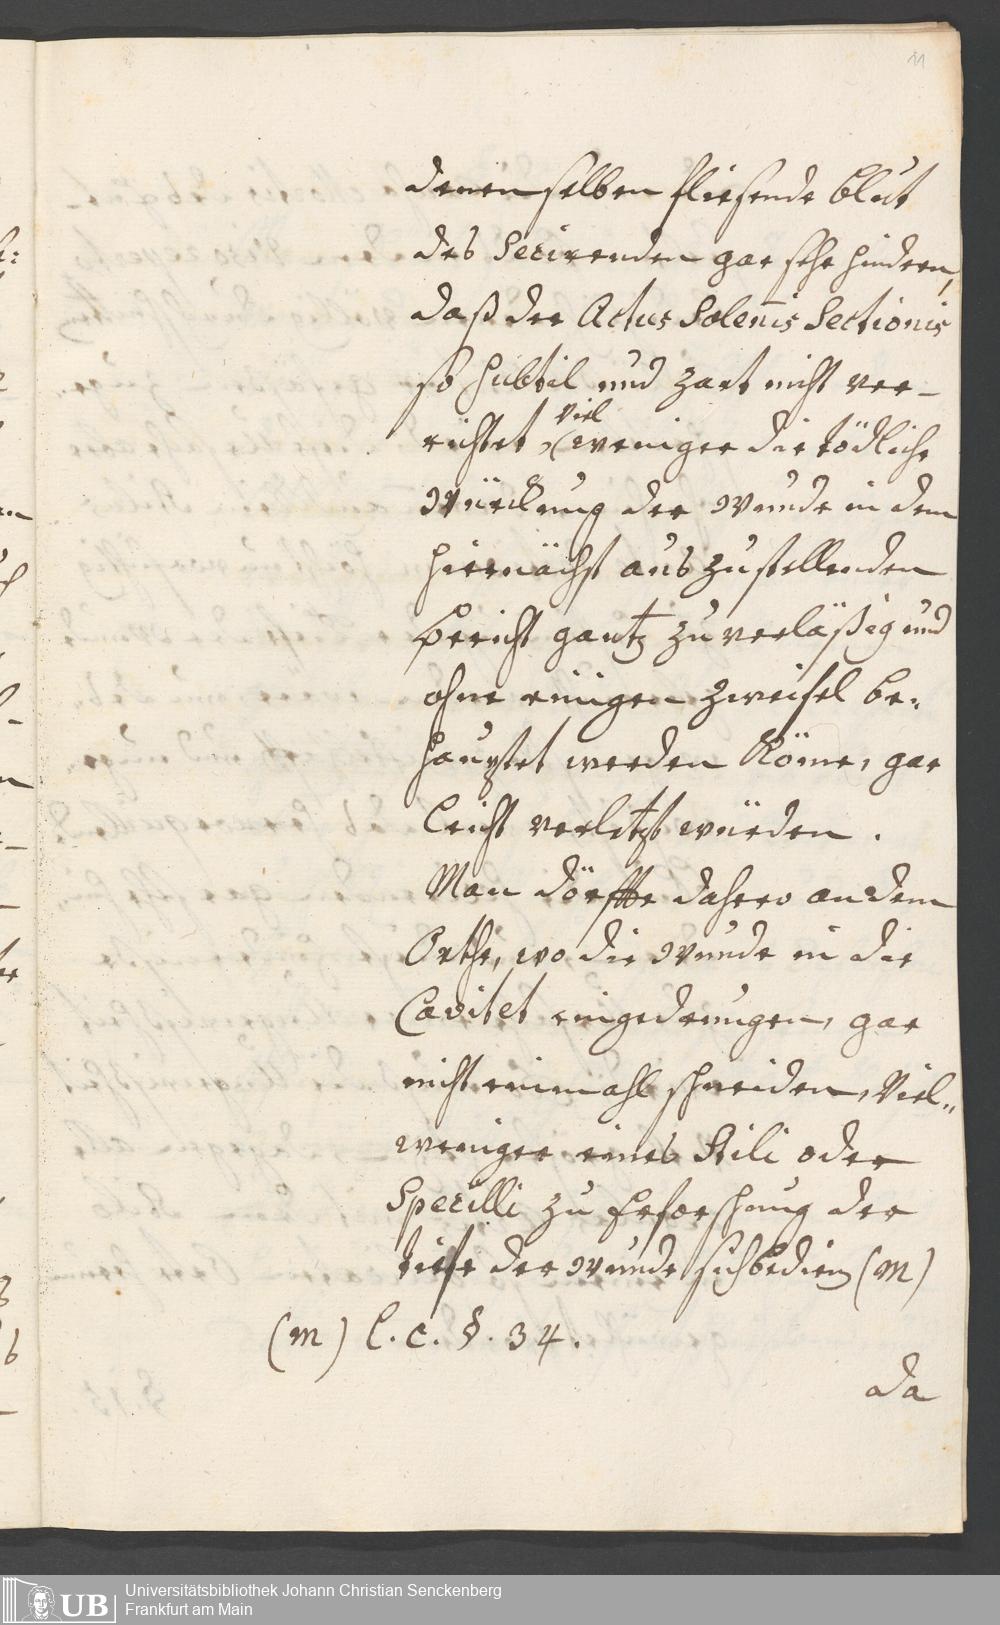 11
denenselben fliesende Blut
des Secirenden gar sehr hindern,
daß der Actus Solennis Sectionis
so subtil und zart nicht ver-
richtet, viel weniger die tödliche
Würckung der Wunde in dem
hiernächst auszustellenden
Bericht gantz zuverläßig und
ohne einigen Zweifel be-
hauptet werden könne, gar
leicht verletzt würden.
Man dörffte dahero an dem
Orthe, wo die Wunde in die
Cavitet eingedrungen, gar
nicht einmahl schneiden, viel-
weniger eines Stili oder
Specilli zu Erforschung der
tiefe der Wunde sich bedienen (m)
(m) l. c. §. 34.
da
UB
Universitätsbibliothek Johann Christian Senckenberg
Frankfurt am Main